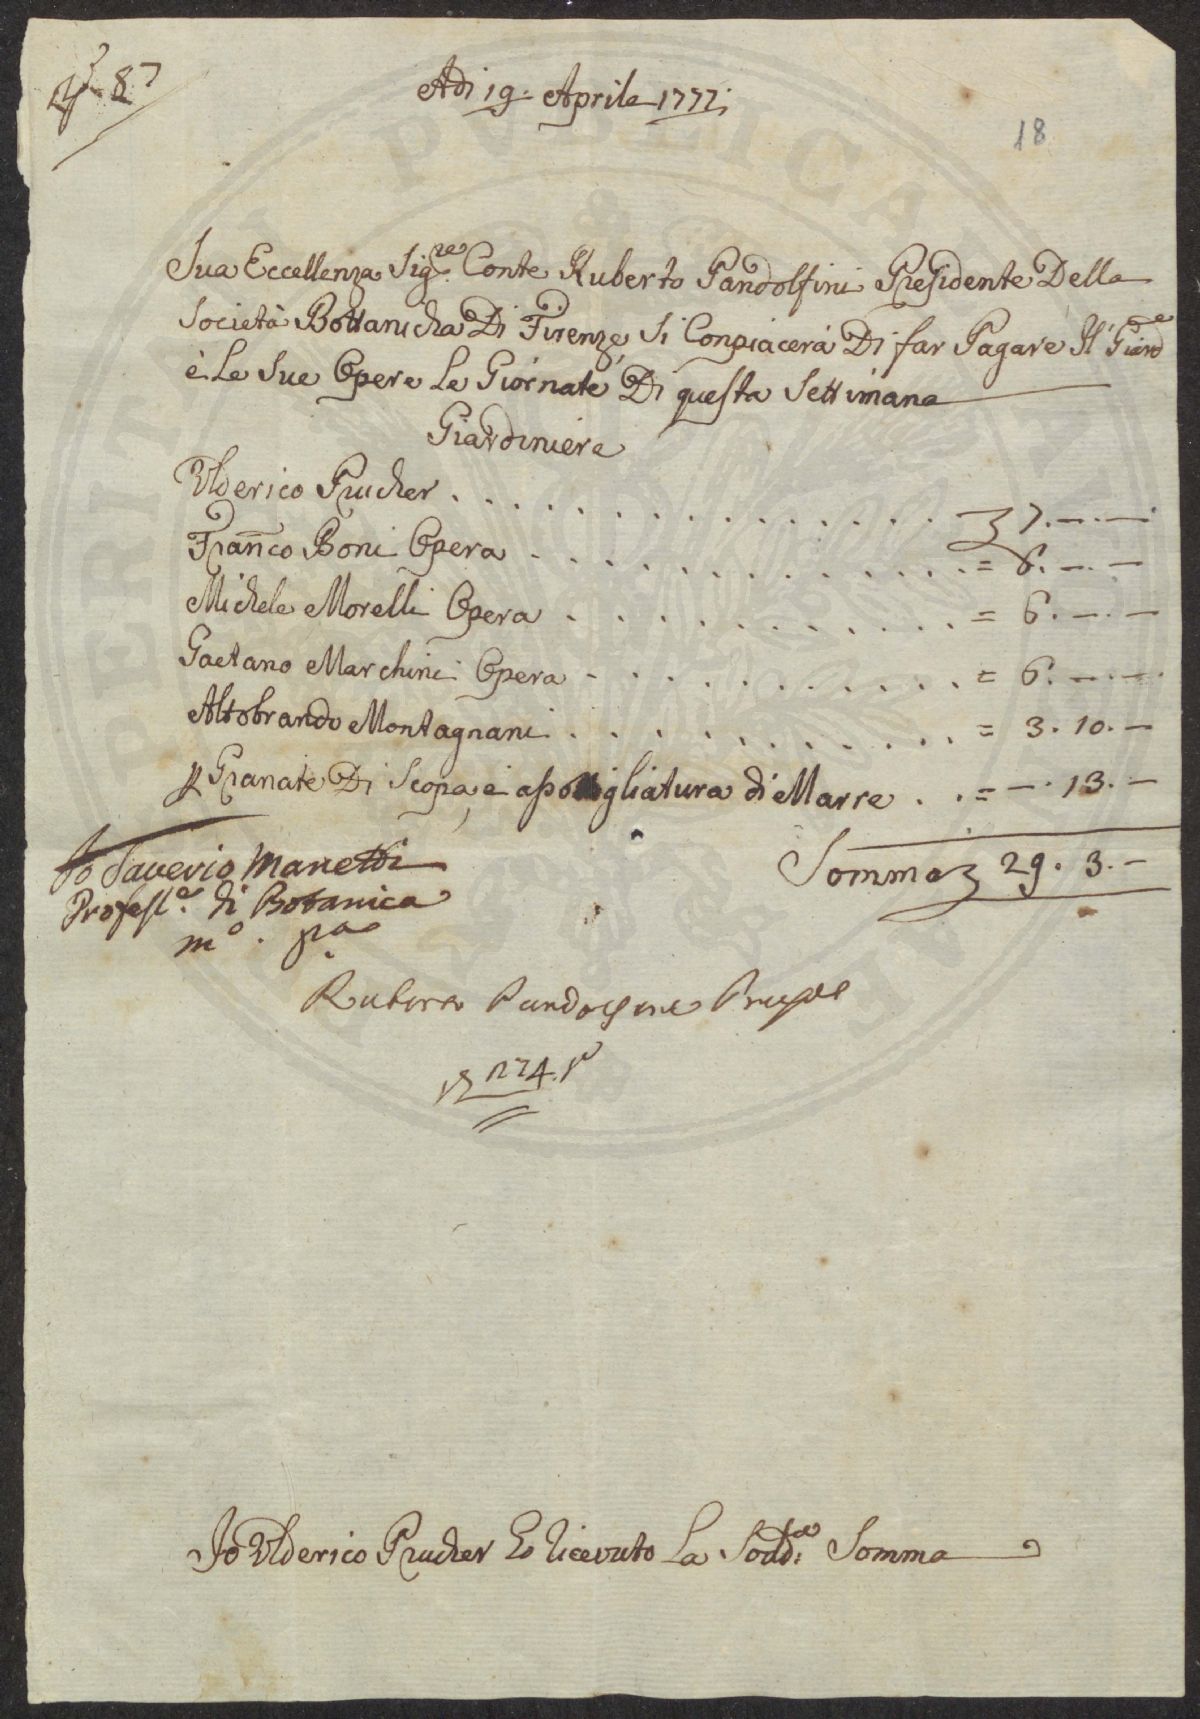 87
Adi 19. Aprile 1777.
18
Sua Eccellenza Sig.re Conte Ruberto Pandolfini Presidente Della
Società Bottanicha Di Firenze, Si Conpiacerà Di far Pagare Il Giard.e
è Le Sue Opere Le Giornate Di questa Settimana
Giardiniere
Ulderico Prucher . . . . . . . . . . . . . . . . 7.—.—
Fran̅co Boni Opera . . . . . . . . . . . . . = 6.—.—
Michele Morelli Opera . . . . . . . . . . . . = 6.—.—
Gaetano Marchini Opera . . . . . . . . . . . = 6.—.—
Altobrando Montagnani . . . . . . . . . . . = 3.10.—
p Granate Di Scopa, e apottigliatura di Marre . . = —.13.—
Somma 29.3.—
Io Saverio Manetti
Profess.e di Botanica
m.o p.a
Ruberto Pandolfini Presid.e
174
Io Ulderico Prucher Ho Ricevuto La Sodd.a Somma
PUBLICAE
PERICULI